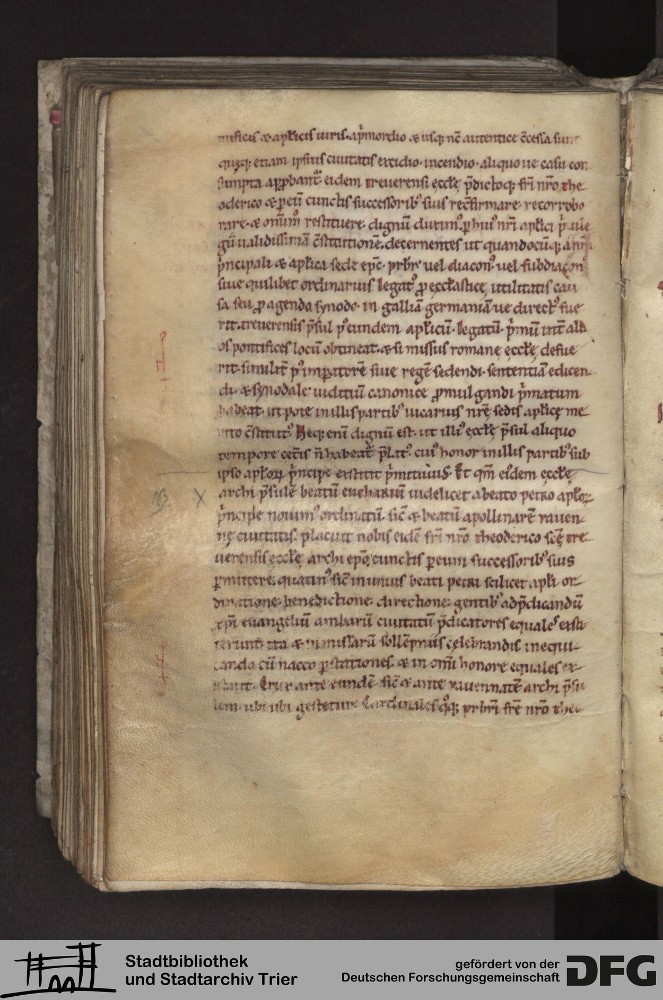 nificis & aplicis viris. apmordio & usq; nc autentice cessa sunt
queq; etiam ipsius civitatis excidio. incendio. aliquo ve casu con
sumpta apphant. eidem treverensi eccle pdictoq; fri nro the
oderico & p eu cunctis successorib suis reconfirmare. recorrobo
rare. & omnium restituere dignu duxim. p hui nri aplici privile
gii validissimā c̄stitutionē. decernentes ut quandocuq; a
principali & aplica sede epc. prbr vel diacon. vel subdiacon
sive quilibet ordinarius legat p ecclastice utilitatis cau
sa seu p agenda synodo. in gallia germaniā ve direct fue
rit. treverensis psul p eundem apliciu legatu. pmu int ali
os pontifices locu obtineat. & si missus romane eccle defue
rit. similit p imperatore sive rege sedendi. sententiā edicen
di. & synodale iuditiu canonice pmulgandi pmatum
habeat. ut pote in illis partib vicarius nre sedis aplice me
rito cstitut. Neq; eni dignu est. ut illi eccle psul aliquo
tempore cetis n habeat plat. cui honor in illis partib sub
ipso aploru principe exstitit pmitivus. Et qm eidem eccle
archi psule beatu eucharium videlicet a beato petro aplor
principe novim ordinatu. sic & beatu apollinare raven
ne civitatis. placuit nobis eide fri nro theoderico sce tre
verensis eccle archi epo. cunctis p eum successorib suis
pmittere. quatin sic in unius beati petri scilicet apli or
dinatione. benedictione. directione. gentib ad pdicandu
xpi evangeliu ambaru civitatu pdicatores equales exsti
terunt. ita & in missaru sollempniis celebrandis in equi
tando cu nacco p stationes. & in omi honore equales ex
istant. Crux ante eunde sic & ante ravennate archi psu
lem. ubi ubi gestetur. Cardinales qq; prbri fre nro the
163 X
Stadtbibliothek
und Stadtarchiv Trier
gefördert von der
Deutschen Forschungsgemeinschaft
DFG